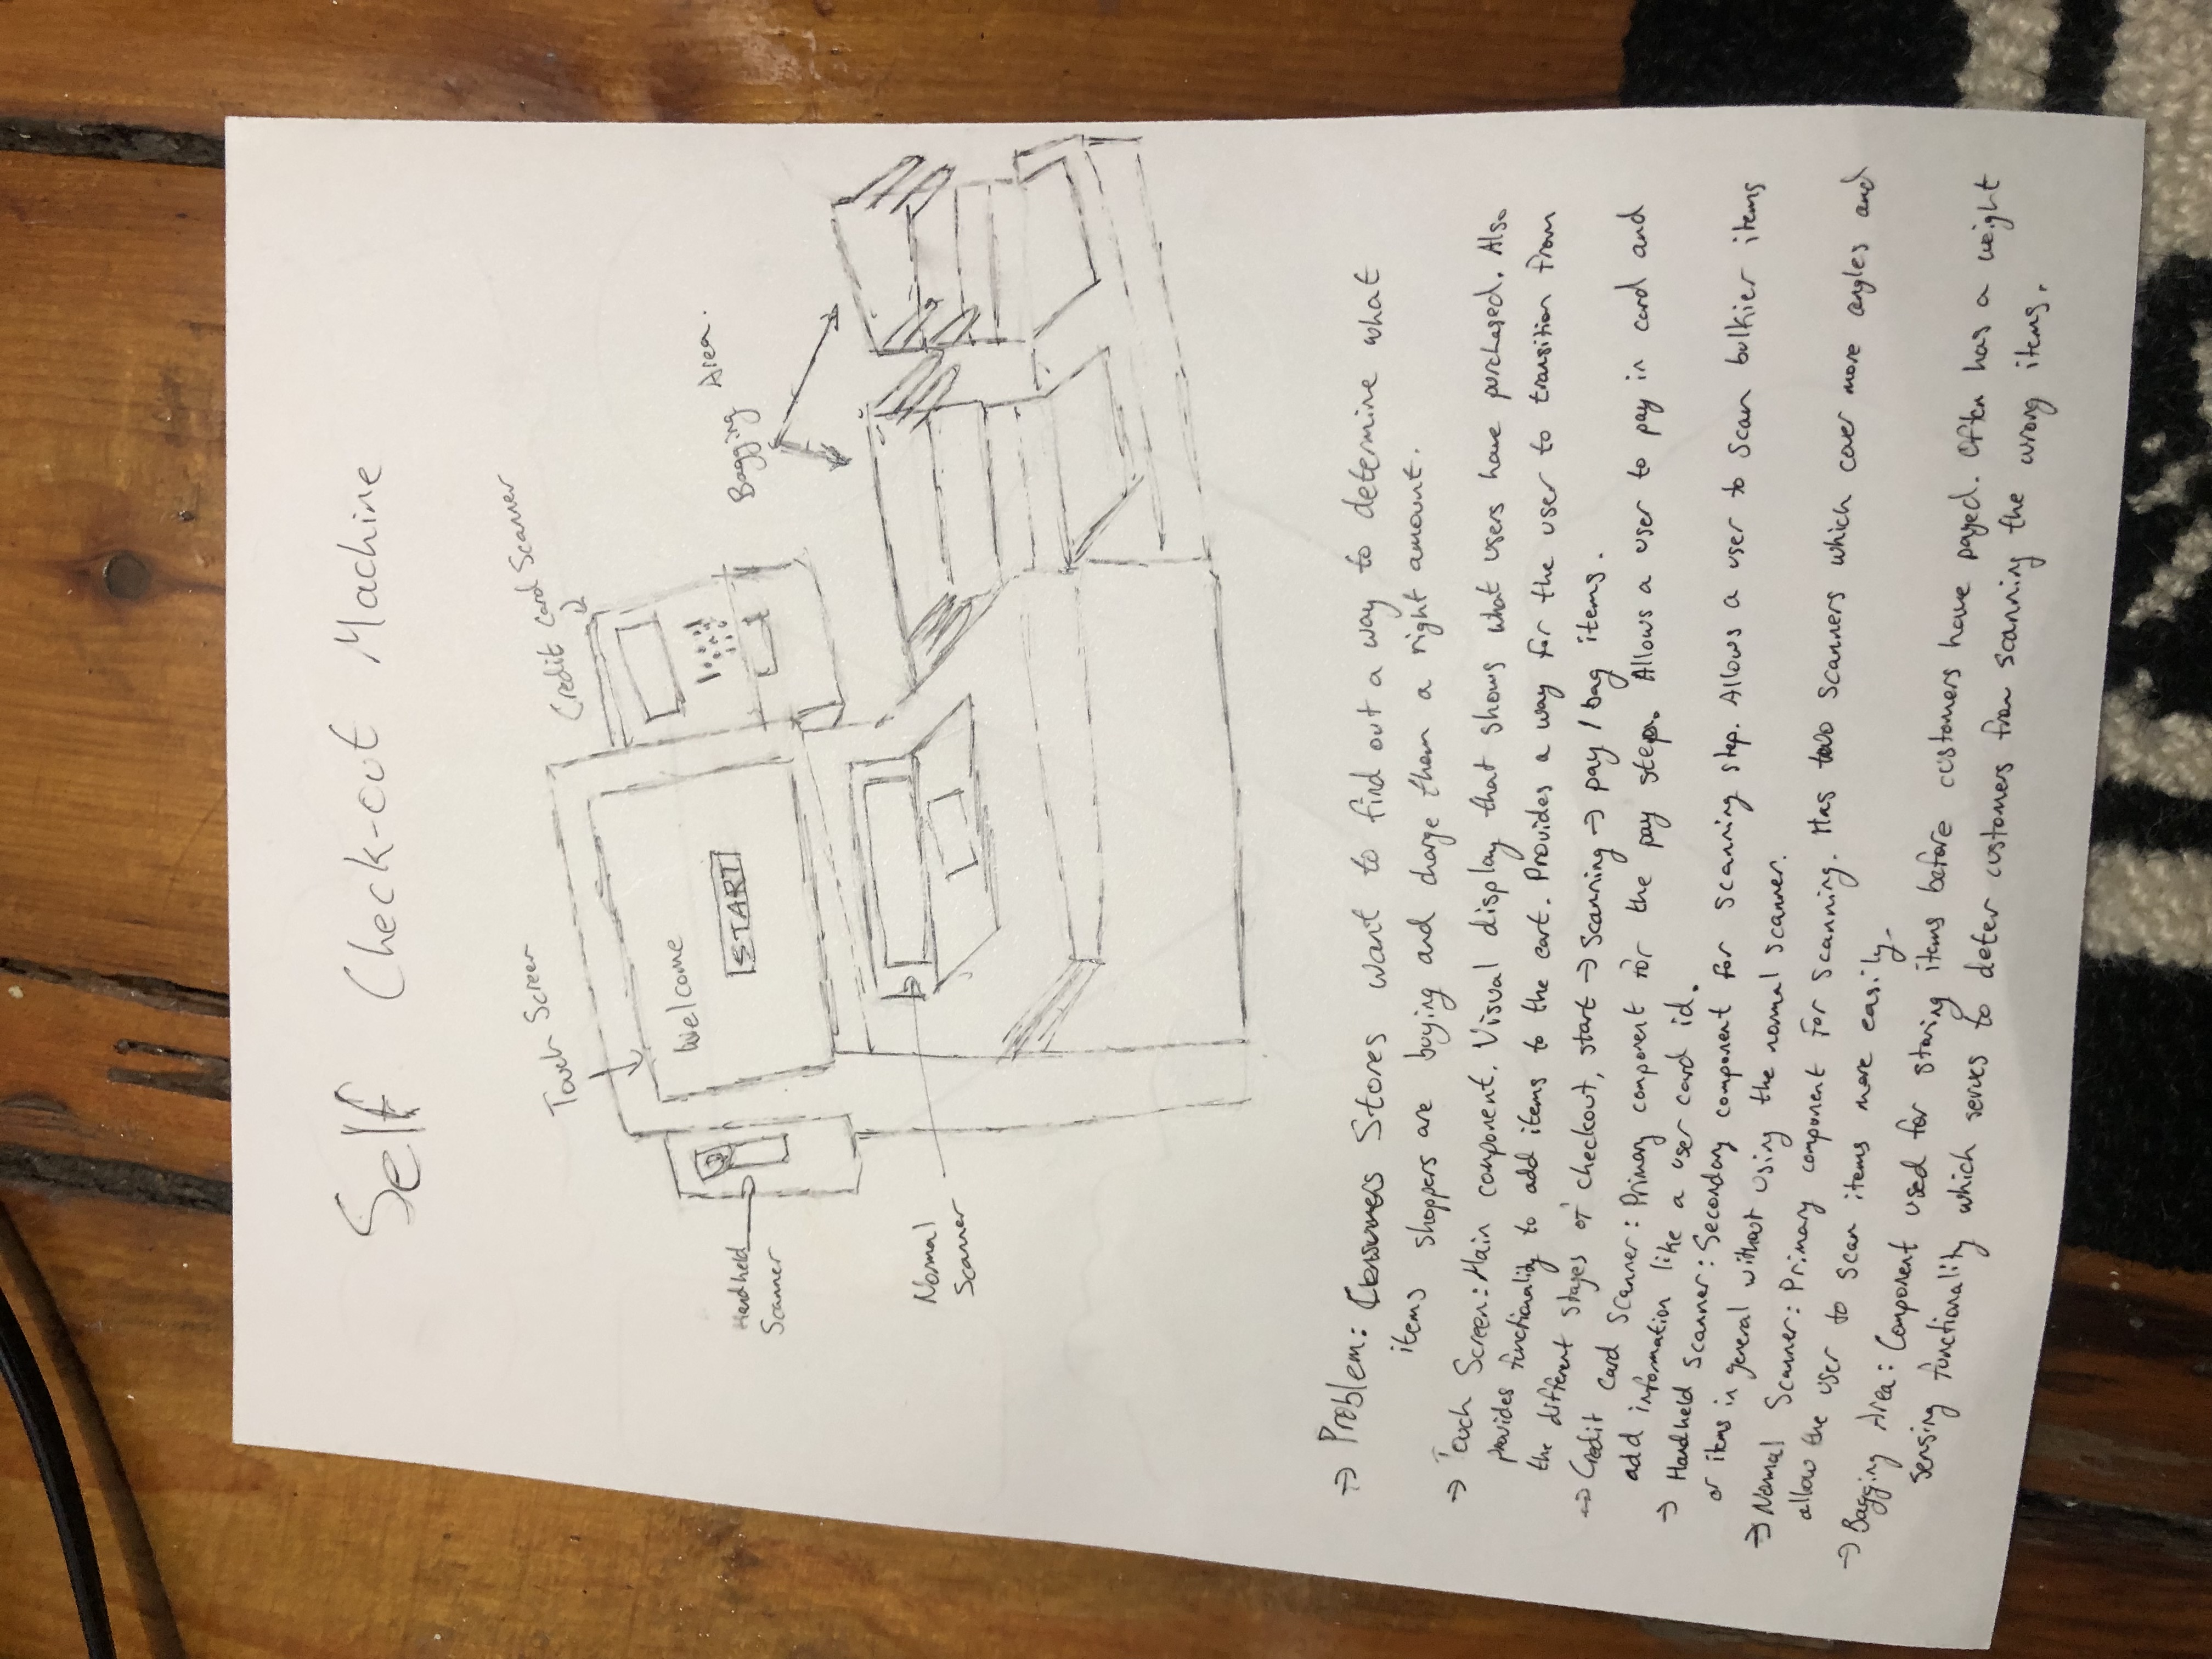 Self Check-out Machine
Touch Screen
Credit Card Scanner
Welcome
START
Handheld
Scanner
Bagging Area.
Normal
Scanner
→ Problem: Consumers Stores want to find out a way to determine what
items shoppers are buying and charge them a right amount.
→ Touch Screen: Main component. Visual display that shows what users have purchased. Also
provides functionality to add items to the cart. Provides a way for the user to transition from
the different stages of checkout, start → Scanning → pay / bag items.
→ Credit Card Scanner: Primary component for the pay step. Allows a user to pay in card and
add information like a user card id.
→ Handheld Scanner: Secondary component for scanning step. Allows a user to scan bulkier items
or items in general without using the normal scanner.
→ Normal Scanner: Primary component for scanning. Has two scanners which cover more angles and
allow the user to scan items more easily.
→ Bagging Area: Component used for storing items before customers have payed. Often has a weight
sensing functionality which serves to deter customers from scanning the wrong items.